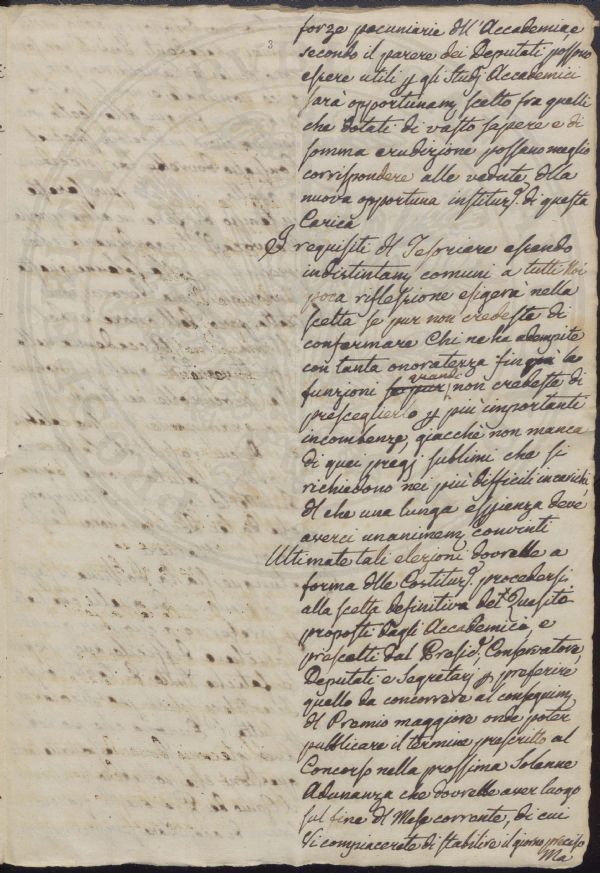 3
forze pecuniarie dll'Accademia, e
secondo il parere dei Deputati possono
essere utili p gli Studj Accademici
sarà opportunam. scelto fra quelli
che dotati di vasto sapere e di
somma erudizione possano meglio
corrispondere alle vedute dlla
nuova opportuna instituz.e di questa
Carica
I requisiti dl Tesoriere essendo
indistintam. comuni a tutti Noi
poca riflessione esigerà nella
scelta se pur non credeste di
confermare Chi ne ha adempite
con tanta onoratezza fin quì le
funzioni quando non credeste di
presceglierlo p più importanti
incombenze, giacchè non manca
di quei pregj sublimi che si
richiedono nei più difficili incarichi,
dl che una lunga esperienza deve
averci unanimem. convinti
Ultimate tali elezioni dovrebbe a
forma dlle Costituz. procedersi
alla scelta definitiva del Quesito
proposti dagli Accademici, e
prescelti dal Presid. Conservatore,
Deputati e Segretarj p preferire
quello da concorrere al conseguim.
dl Premio maggiore onde poter
pubblicare il termine prescritto al
Concorso nella prossima Solenne
Adunanza che dovrebbe aver luogo
sul fine dl Mese corrente, di cui
Vi compiacerete di stabilire il giorno preciso
Ma